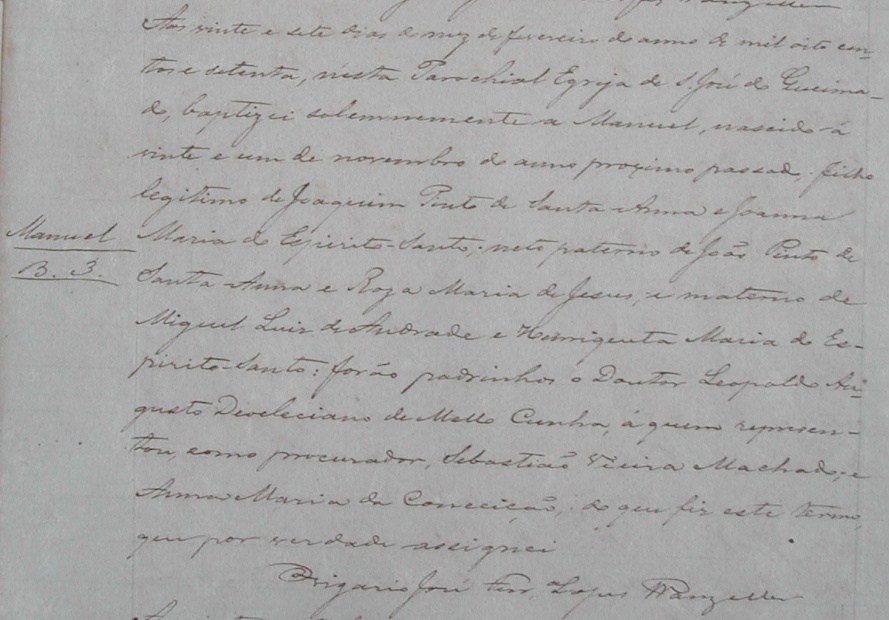 Aos vinte e sete dias do mez de fevereiro do anno de mil oito cen-
tos e setenta, n'esta Parochial Egreja de S. José do Gueima-
do, baptizei solemnemente a Manuel, nascido á
vinte e um de novembro do anno proximo passado, filho
legitimo de Joaquim Pinto de Santa Anna e Joanna
Manuel
B. 3.
Maria do Espirito-Santo; neto paterno de João Pinto de
Santa Anna e Roza Maria de Jesus, e materno de
Miguel Luiz de Andrade e Henriqueta Maria do Es-
pirito-Santo: forão padrinhos o Doutor Leopoldo Au-
gusto Deocleciano de Mello Cunha, á quem represen-
tou, como procurador, Sebastião Vieira Machado, e
Anna Maria da Conceição; do que fiz este termo,
que por verdade assignei
Vigario José Lopes Wanzeller